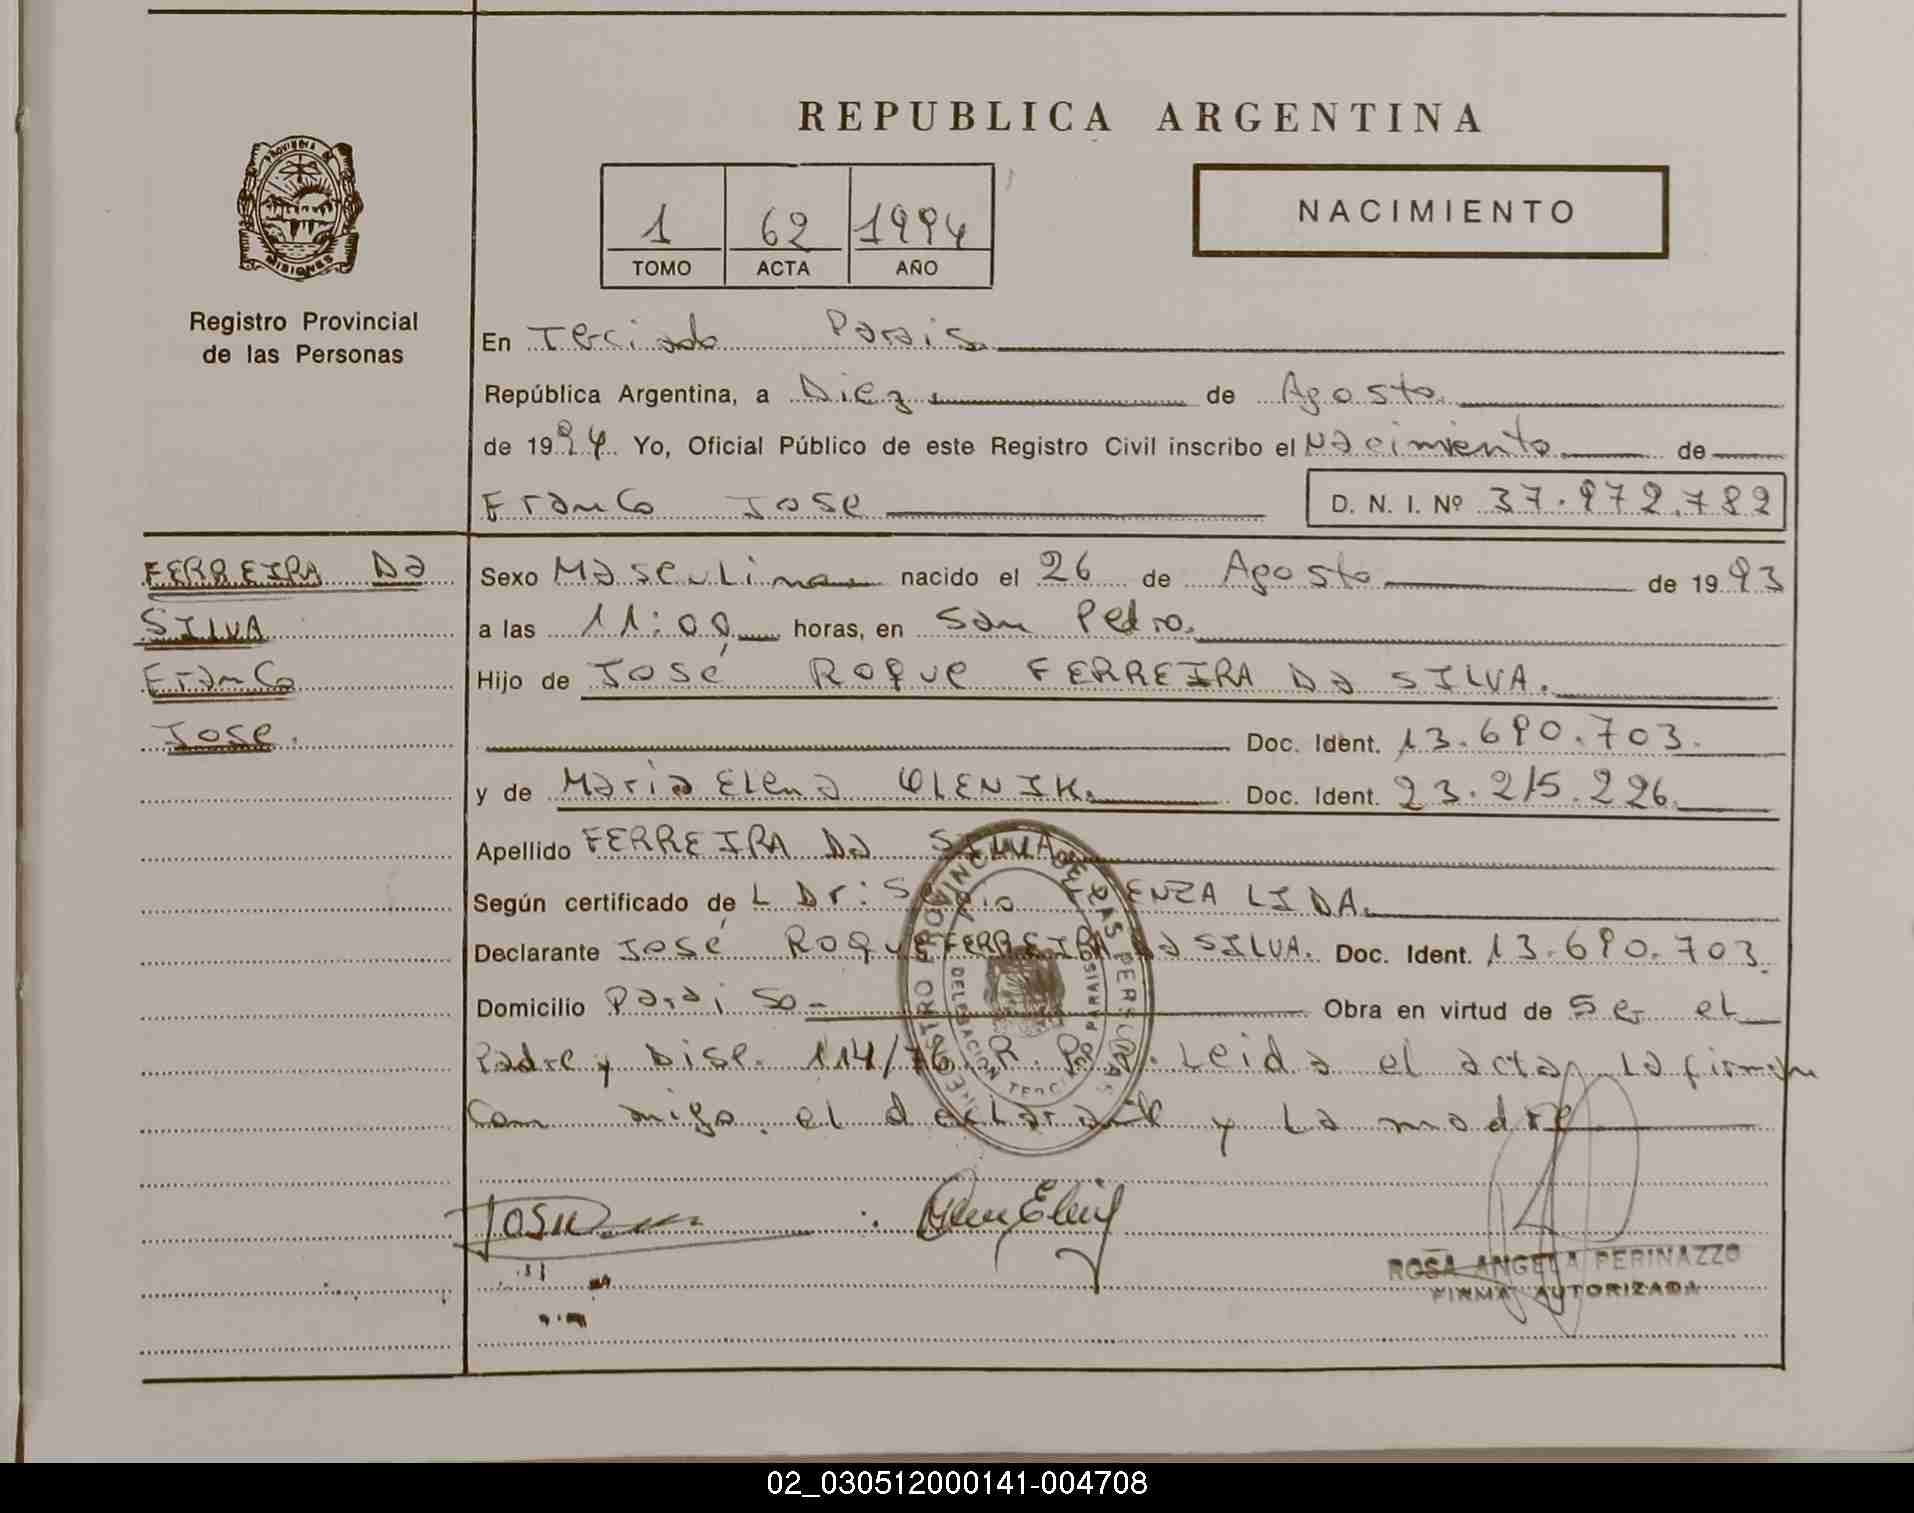 REPUBLICA ARGENTINA
PROVINCIA DE
MISIONES
Registro Provincial
de las Personas
1 62 1994
TOMO ACTA AÑO
NACIMIENTO
En Terciado Parais.
República Argentina, a Diez de Agosto.
de 1994. Yo, Oficial Público de este Registro Civil inscribo el Nacimiento de
Franco Jose D. N. I. Nº 37.972.782
FERREIRA Da
SILVA
Franco
Jose.
Sexo Masculino nacido el 26 de Agosto de 1993
a las 11:00 horas, en San Pedro.
Hijo de José Roque FERREIRA Da SILVA.
Doc. Ident. 13.690.703.
y de Maria Elena OLENIK. Doc. Ident. 23.215.226.
Apellido FERREIRA Da SILVA
Según certificado de L Dr: ENZA LIDA.
Declarante José Roque FERREIRA Da SILVA. Doc. Ident. 13.690.703.
Domicilio Paraiso- Obra en virtud de Ser el
Padre y Disp. 114/76 R. P. P. Leida el acta, La firman
con migo, el declarante y La madre
REGISTRO PROVINCIAL DE LAS PERSONAS
DELEGACION TERCIADO PARAISO
ROSA ANGELA PERINAZZO
FIRMA AUTORIZADA
02_030512000141-004708